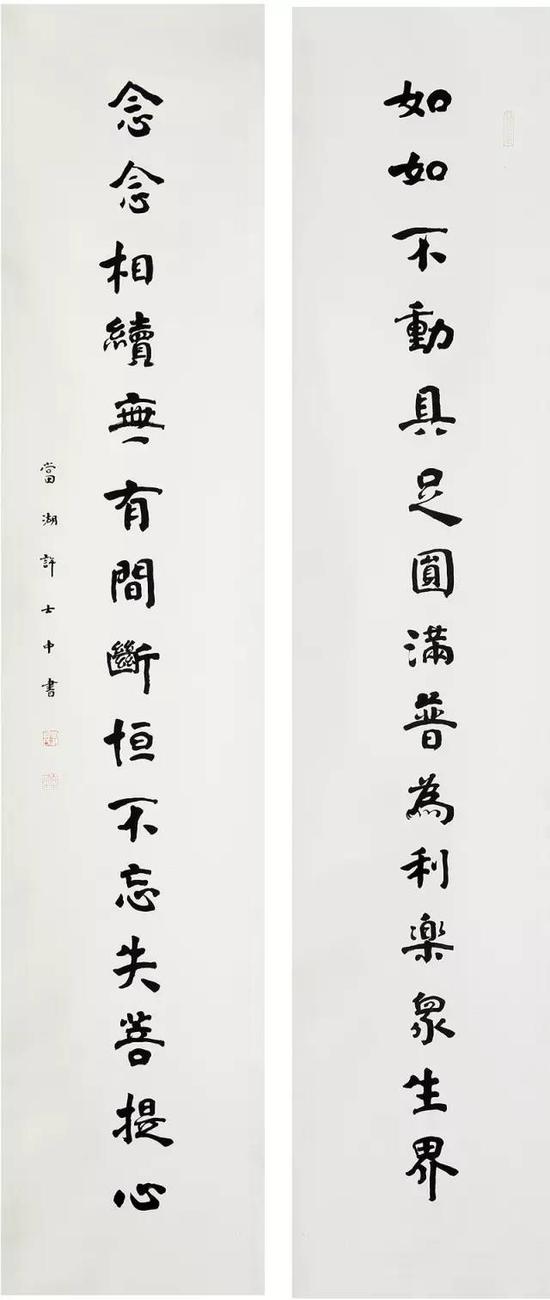 如如不動具足圓滿普為利楽眾生界
念念相續無有間斷恒不忘失菩提心
當湖許士中書